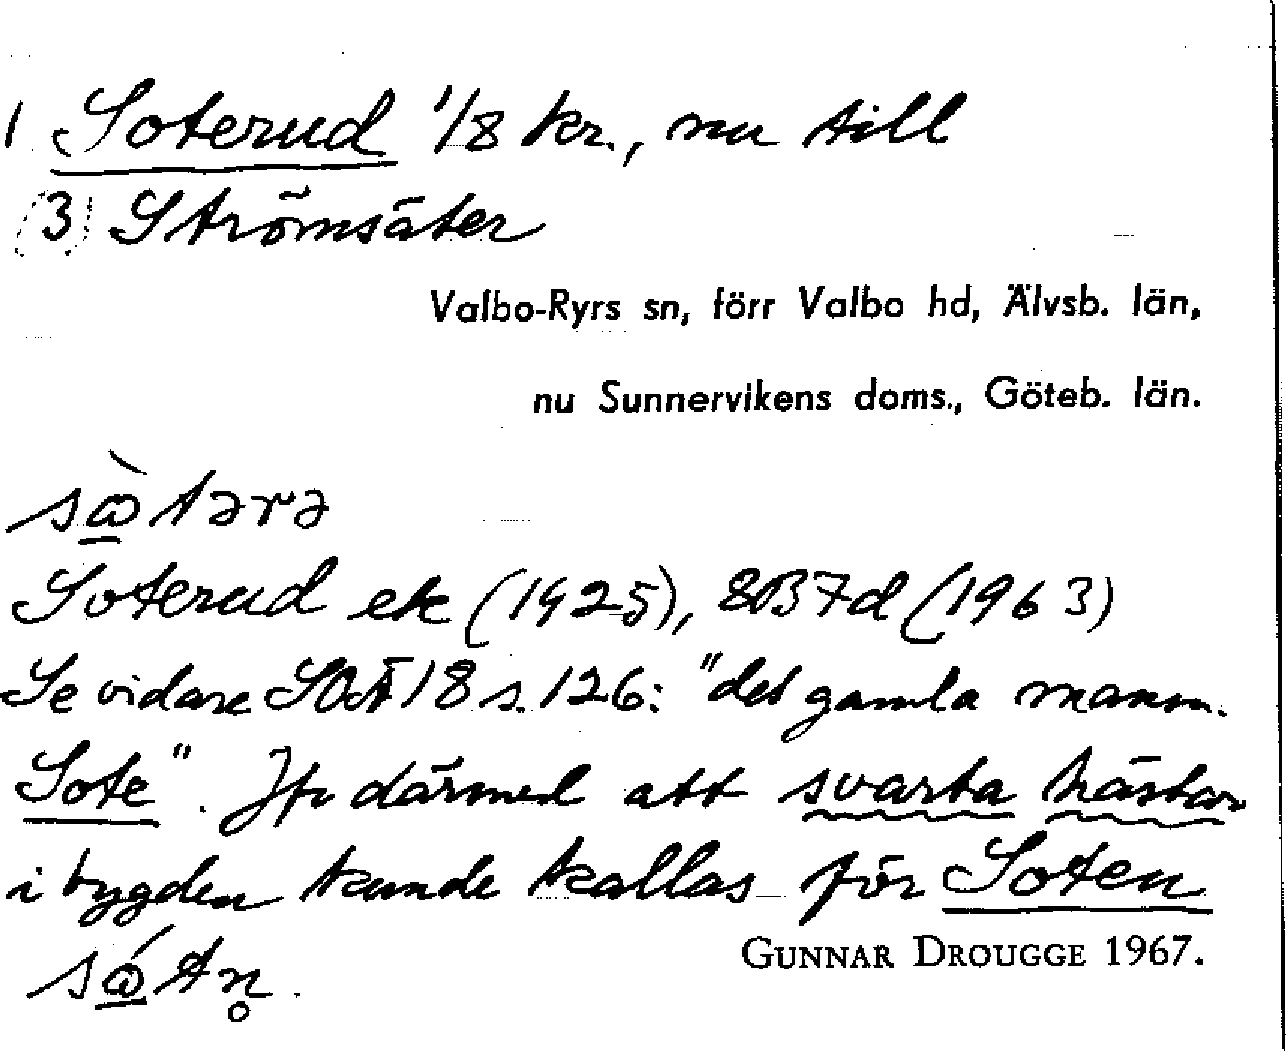 1 Soterud 1/8 kr., nu till
(3) Strömsäter
Valbo-Ryrs sn, förr Valbo hd, Älvsb. län,
nu Sunnervikens doms., Göteb. län.
sὼ̲tərə
Soterud ek (1925), 8B7d (1963)
Se vidare SOÄ 18 s. 126: "det gamla mansn.
Sote". Jfr därmed att svarta hästar
i bygden kunde kallas för Soten
sώ̲tn̥.
GUNNAR DROUGGE 1967.